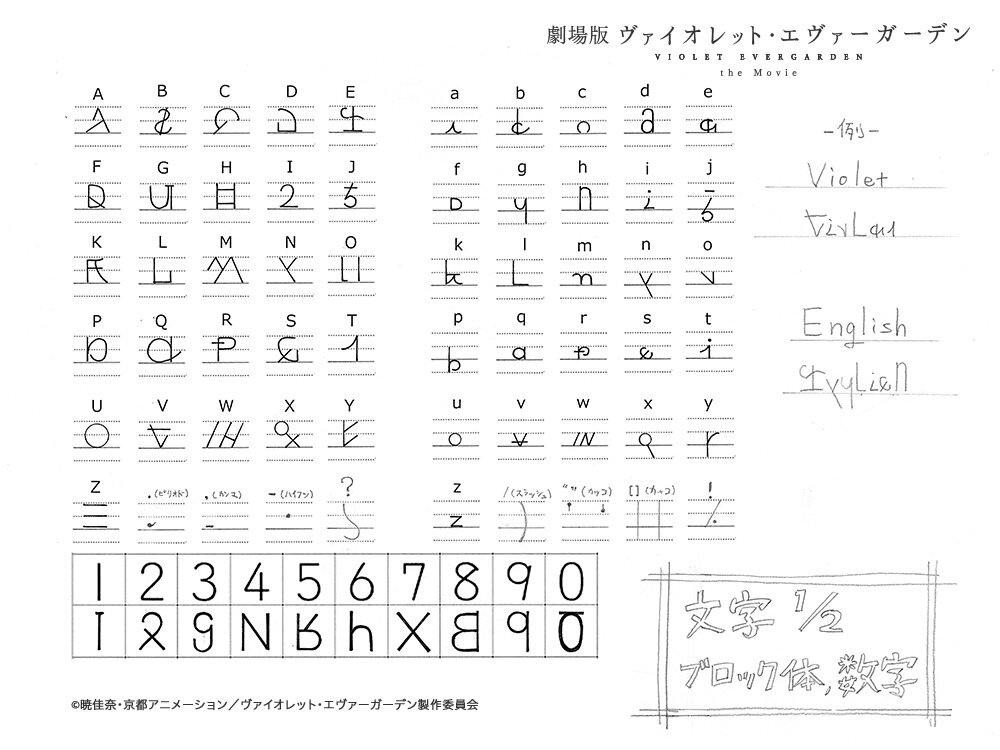 劇場版 ヴァイオレット・エヴァーガーデン
VIOLET EVERGARDEN
the Movie
A B C D E
a b c d e
F G H I J
f g h i j
K L M N O
k l m n o
P Q R S T
p q r s t
U V W X Y
u v w x y
Z .(ピリオド) ,(カンマ) -(ハイフン) ?
z /(スラッシュ) “”(カッコ) [](カッコ) !
1 2 3 4 5 6 7 8 9 0
-例-
Violet
English
文字 1/2
ブロック体,数字
©暁佳奈・京都アニメーション／ヴァイオレット・エヴァーガーデン製作委員会